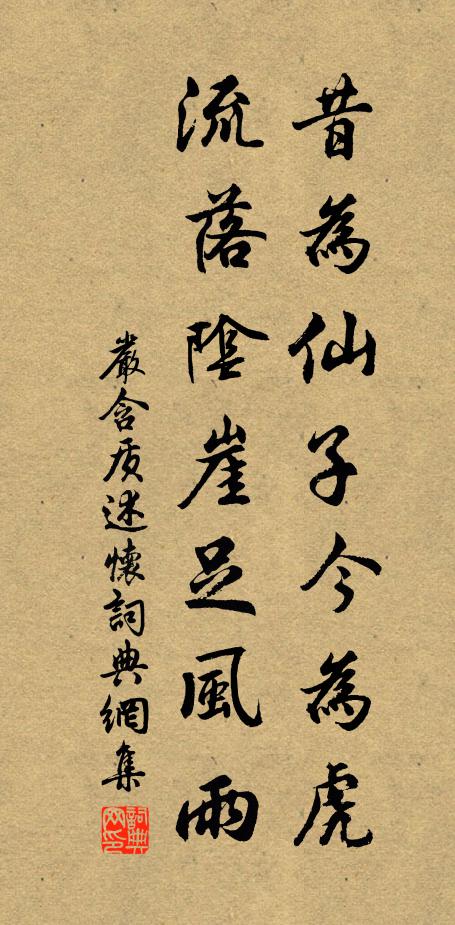 昔為仙子今為虎
流落陰崖足風雨
嚴含质述懷詞典網集
詞典网印